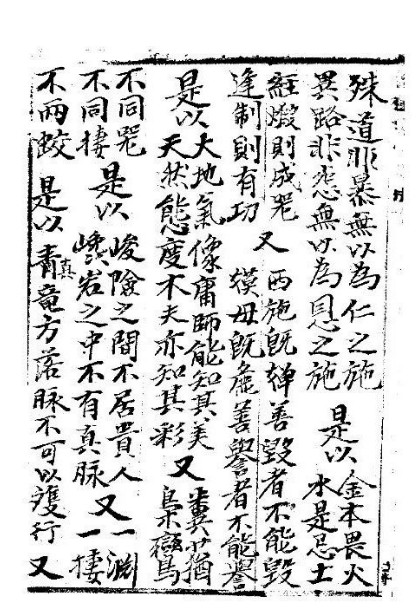 殊道非暴無以為仁之施 是以 金本畏火
異路非悲無以為恩之施 水是忌土
經煅則成器 又 西施既善毀者不能毀
逢制則有功 嫫母既善譽者不能譽
是以 大地氣像庸師能知其美 又 蕕
天然態度不夫亦知其彩 梟鸞
不同器 是以 峻險之間不居貴人 又 一淵
不同棲 巉岩之中不有真脉 一棲
不兩蛟 是以 青竜方落脉不可以獲行 又
真